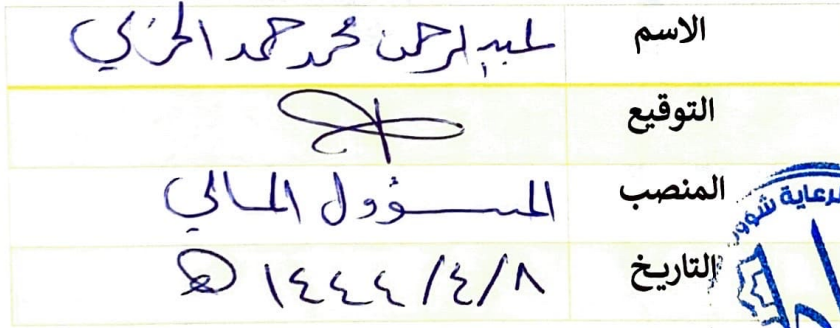 الاسم عبدالرحمن محمد حمد الحربي
التوقيع
المنصب المسؤول المالي
التاريخ ١٤٤٤/٤/٨ هـ
لرعاية شؤون